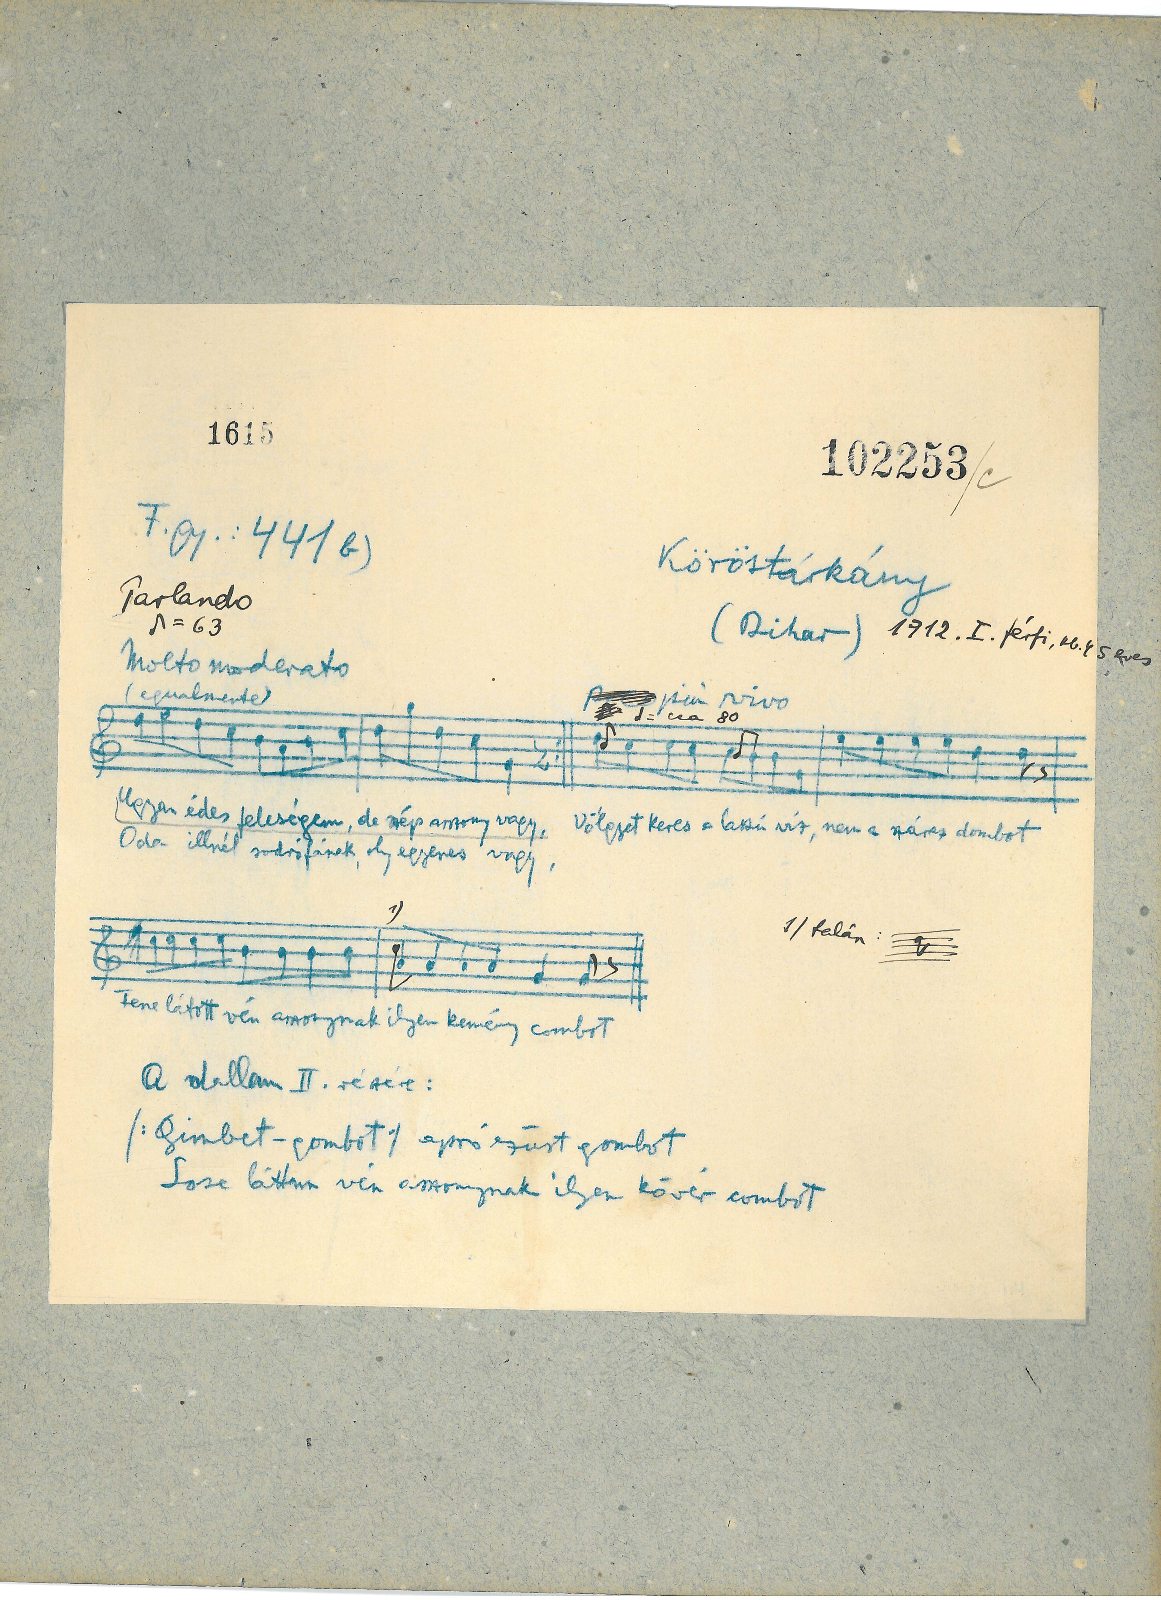 1615
102253/c
F. gy.: 441 b)
Köröstárkány
(Bihar) 1912. I. férfi, kb. 45 éves
Parlando
♪ = 63
Molto moderato
(egualmente)
più vivo
♩ = cca 80
Ugyan édes feleségem, de szép asszony vagy, Völgyet keres a lassú víz, nem a száraz dombot
Oda illnél sodrófának, oly egyenes vagy,
1)
1) talán:
Fene látott vén asszonynak ilyen kemény combot
A dallam II. részére:
/: Gimbet-gombot :/ apró ezüst gombot
Sose láttam vén asszonynak ilyen kövér combot